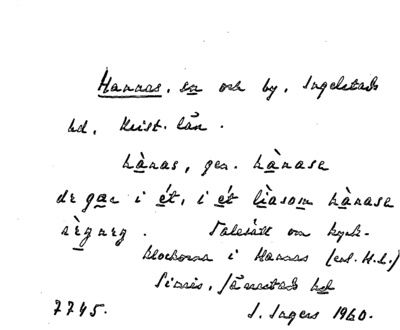 Hannas, sn och by, Ingelstads
hd, Krist. län.
hànas, gen. hànasa
de gạr i ét, i ét lìasom hànasa
règneg. Talesätt om kyrk-
klockorna i Hannas (enl. H.L.)
Simris, Järrestads hd
7745. I. Ingers 1960.